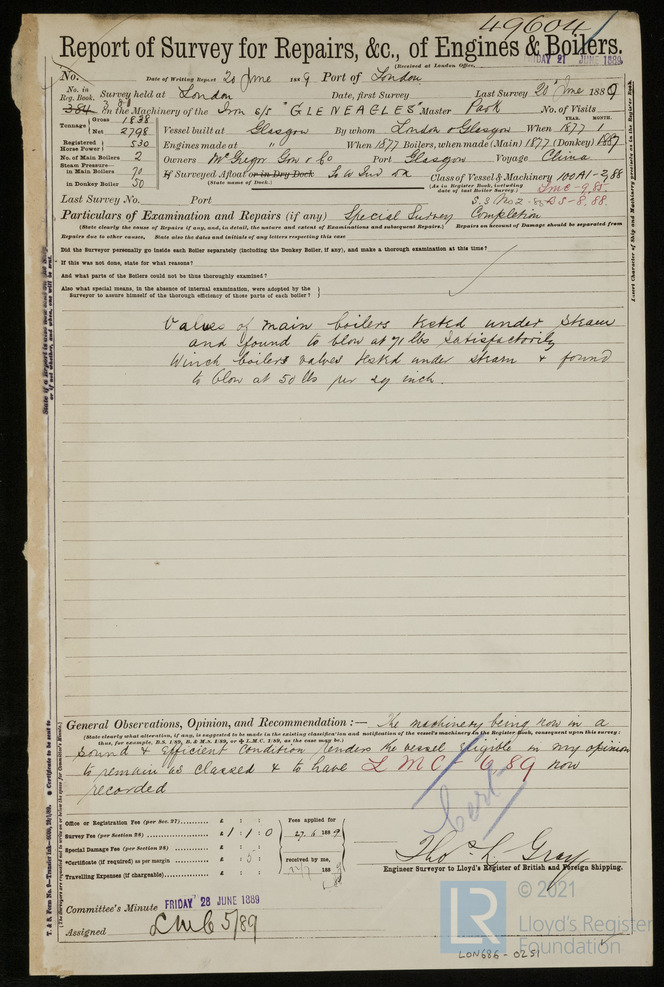 49604
Report of Survey for Repairs, &c., of Engines & Boilers.
(Received at London Office, FRIDAY 21 JUNE 1889
No. Date of Writing Report 20 June 1889 Port of London
No. in Reg. Book. Survey held at London Date, first Survey Last Survey 20 June 1889
384 388 on the Machinery of the Iron S/S "GLENEAGLES" Master Park No. of Visits
Tonnage Gross 1838 Net 2798 Vessel built at Glasgow By whom London & Glasgow When YEAR. 1877 MONTH. 1
Registered Horse Power 530 Engines made at " When 1877 Boilers, when made (Main) 1877 (Donkey) 1887
No. of Main Boilers 2 Owners McGregor Gow & Co Port Glasgow Voyage China
Steam Pressure— in Main Boilers 70 in Donkey Boiler 50 If Surveyed Afloat or in Dry Dock So W Ind Dk
(State name of Dock.)
Class of Vessel & Machinery 100A1-2,88
(As in Register Book, including date of last Boiler Survey.) LMC-9.85.
Last Survey No. Port S.S No 2-85 BS-8.88.
Particulars of Examination and Repairs (if any) Special Survey Completion
(State clearly the cause of Repairs if any, and, in detail, the nature and extent of Examinations and subsequent Repairs.) Repairs on account of Damage should be separated from
Repairs due to other causes, State also the dates and initials of any letters respecting this case
Did the Surveyor personally go inside each Boiler separately (including the Donkey Boiler, if any), and make a thorough examination at this time?
If this was not done, state for what reasons?
And what parts of the Boilers could not be thus thoroughly examined?
Also what special means, in the absence of internal examination, were adopted by the
Surveyor to assure himself of the thorough efficiency of those parts of each boiler?
Valves of main boilers tested under steam
and found to blow at 71 lbs satisfactorily
Winch boilers valves tested under steam & found
to blow at 50 lbs per sq inch.
General Observations, Opinion, and Recommendation :— The machinery being now in a
(State clearly what alteration, if any, is suggested to be made in the existing classification and notification of the vessel's machinery in the Register Book, consequent upon this survey;
thus, for example, B.S. 1/89, D. & M.S. 1/89, or L.M.C. 1/89, as the case may be.)
sound & efficient condition renders the vessel eligible in my opinion
to remain as classed & to have LMC 6 89 now
recorded
Cert
Office or Registration Fee (per Sec. 27) £ : : Fees applied for
Survey Fee (per Section 28) £ 1 : 1 : 0 27.6 1889
Special Damage Fee (per Section 28) £ : :
*Certificate (if required) as per margin £ : 5 : received by me,
Travelling Expenses (if chargeable) £ : : 188
Thos L Gray
Engineer Surveyor to Lloyd's Register of British and Foreign Shipping.
Committee's Minute FRIDAY 28 JUNE 1889
Assigned LMC 5/89
LR © 2021
Lloyd's Register
Foundation
LON686-0251